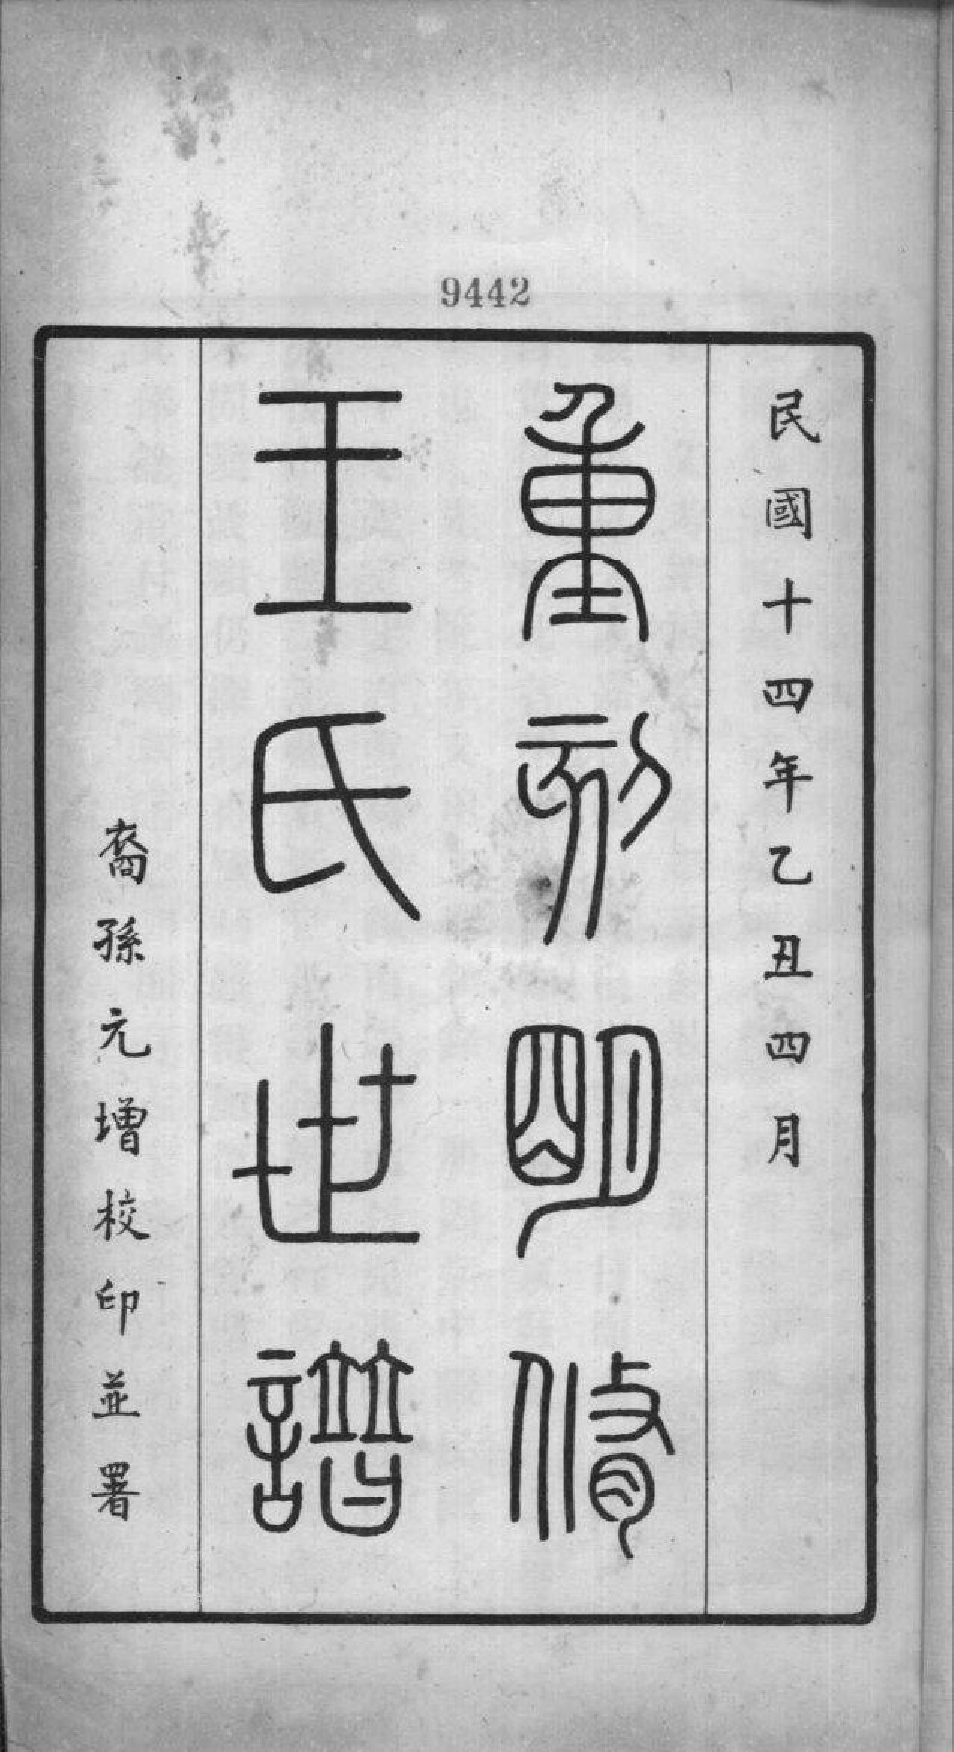 9442
民國十四年乙丑四月
重刻明脩
王氏世譜
裔孫元增校印並署